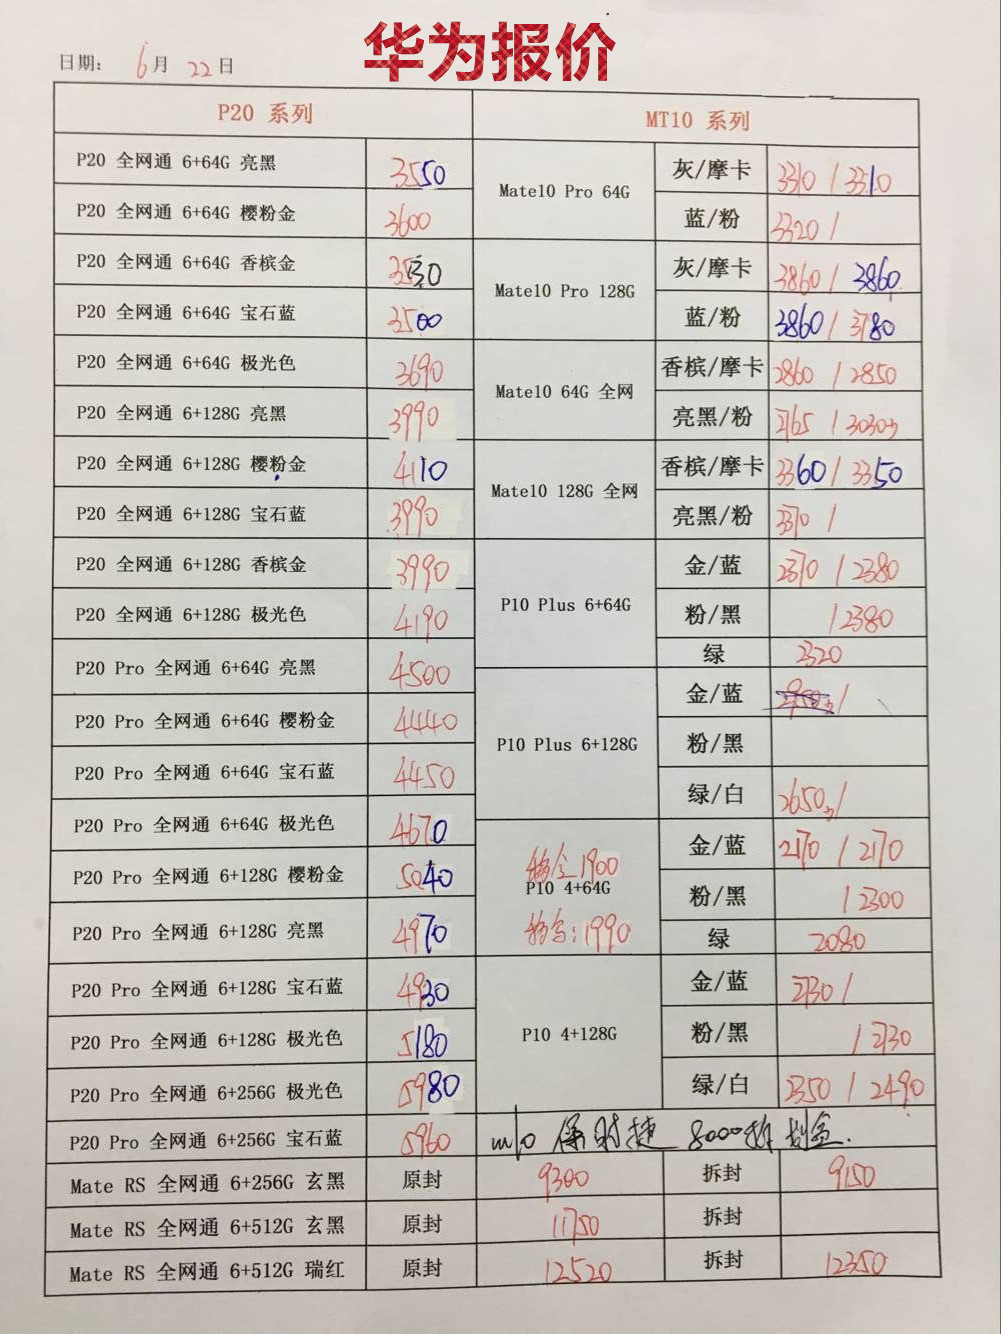 华为报价
日期： 6月 22日
P20 系列 MT10 系列
P20 全网通 6+64G 亮黑 3550
P20 全网通 6+64G 樱粉金 3600
P20 全网通 6+64G 香槟金
P20 全网通 6+64G 宝石蓝 3500
P20 全网通 6+64G 极光色 3690
P20 全网通 6+128G 亮黑 3990
P20 全网通 6+128G 樱粉金 4110
P20 全网通 6+128G 宝石蓝 3990
P20 全网通 6+128G 香槟金 3990
P20 全网通 6+128G 极光色 4190
P20 Pro 全网通 6+64G 亮黑 4500
P20 Pro 全网通 6+64G 樱粉金 4440
P20 Pro 全网通 6+64G 宝石蓝 4450
P20 Pro 全网通 6+64G 极光色 4670
P20 Pro 全网通 6+128G 樱粉金 5040
P20 Pro 全网通 6+128G 亮黑 4970
P20 Pro 全网通 6+128G 宝石蓝 4930
P20 Pro 全网通 6+128G 极光色 5180
P20 Pro 全网通 6+256G 极光色 5980
P20 Pro 全网通 6+256G 宝石蓝 5960
Mate10 Pro 64G
灰/摩卡 3310 / 3310
蓝/粉 3320 /
Mate10 Pro 128G
灰/摩卡 3860 / 3860
蓝/粉 3860 / 3780
Mate10 64G 全网
香槟/摩卡 2860 / 2850
亮黑/粉 2765 / 3030
Mate10 128G 全网
香槟/摩卡 3360 / 3350
亮黑/粉 3370 /
P10 Plus 6+64G
金/蓝 2370 / 2380
粉/黑 / 2380
绿 2320
P10 Plus 6+128G
金/蓝 /
粉/黑
绿/白 2650 /
1900
P10 4+64G
1990
金/蓝 2170 / 2170
粉/黑 / 2300
绿 2080
P10 4+128G
金/蓝 2730 /
粉/黑 / 2730
绿/白 2350 / 2490
m10 保时捷 8000拆
Mate RS 全网通 6+256G 玄黑 原封 9300 拆封 9150
Mate RS 全网通 6+512G 玄黑 原封 11750 拆封
Mate RS 全网通 6+512G 瑞红 原封 12520 拆封 12350